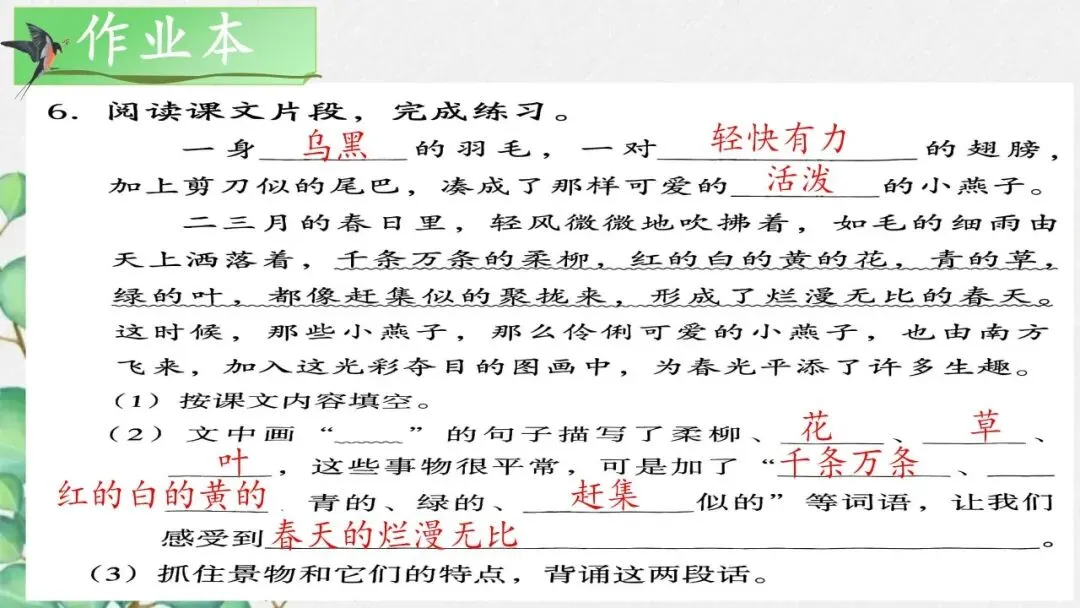 作业本
6. 阅读课文片段，完成练习。
一身乌黑的羽毛，一对轻快有力的翅膀，
加上剪刀似的尾巴，凑成了那样可爱的活泼的小燕子。
二三月的春日里，轻风微微地吹拂着，如毛的细雨由
天上洒落着，千条万条的柔柳，红的白的黄的花，青的草，
绿的叶，都像赶集似的聚拢来，形成了烂漫无比的春天。
这时候，那些小燕子，那么伶俐可爱的小燕子，也由南方
飞来，加入这光彩夺目的图画中，为春光平添了许多生趣。
（1）按课文内容填空。
（2）文中画“﹏﹏”的句子描写了柔柳、花、草、
叶，这些事物很平常，可是加了“千条万条、
红的白的黄的、青的、绿的、赶集似的”等词语，让我们
感受到春天的烂漫无比。
（3）抓住景物和它们的特点，背诵这两段话。